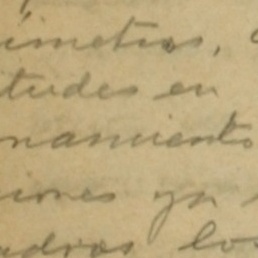 imetros,
itudes en
namiento
iones ya
adros los